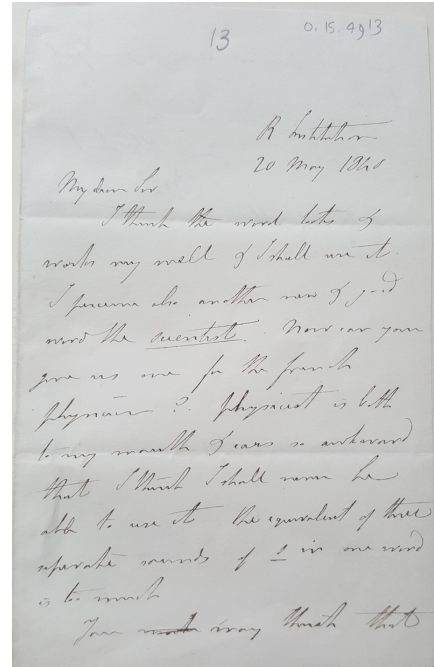 13
O.15.49 13
R Institution
20 May 1840
My dear Sir
I think the word looks &
works very well & I shall use it.
I perceive also another new & good
word the scientist. Now can you
give us one for the french
physicien? Physicist is both
to my mouth & ears so awkward
that I think I shall never be
able to use it the equivalent of three
separate sounds of s in one word
is too much
You may think that